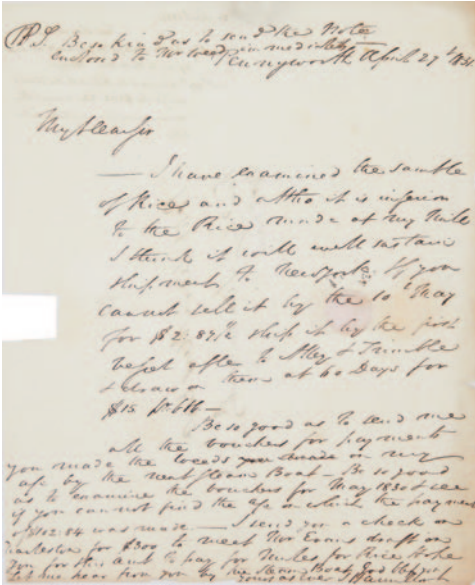 P.S. Be so kind as to send the Note
enclosed to Mr immediately
Pennyworth April 27th
My Dear Sir
I have examined the sample
of Rice and altho it is inferior
to the Rice made at my Mill
I think it will well sustain
shipment to New York. If you
cannot sell it by the 10th May
for $2:87½ ship it by the first
vessel after to & Trimble
& draw on them at 60 Days for
$15 pr
Be so good as to send me
all the vouchers for payments
you made the on my
a/c by the next Steam Boat – Be so good
as to examine the vouchers for May 1830 & see
if you cannot find the a/c on which the payment
of $102:84 was made – I send you a check on
Charleston for $300 to meet Mr Evans draft on
you for this amt to pay for Mules for Rice Hope
Let me hear from you by the Steam Boat. God bless you
yours as ever